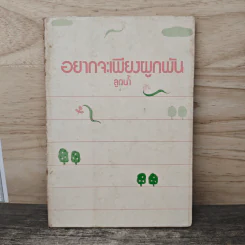 อยากจะเพียงผูกพัน
ฤดูน้ำ